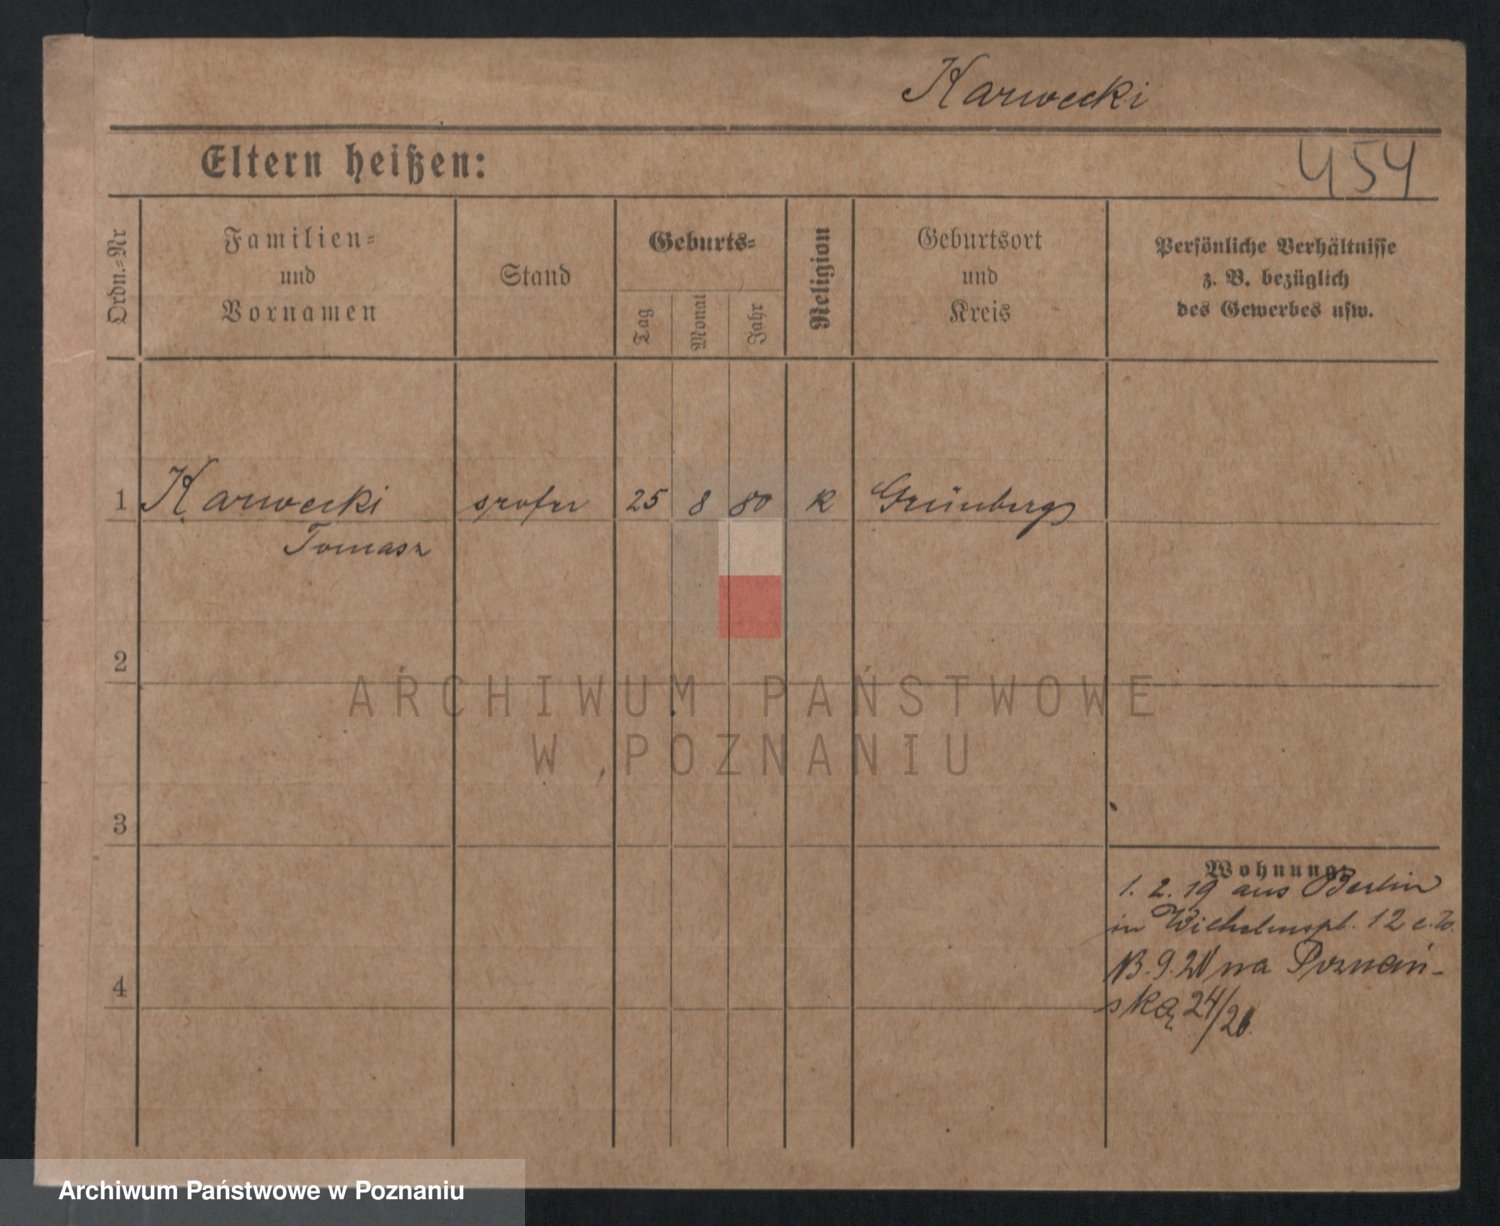 Karwecki
Eltern heißen:
454
Ordn.-Nr
Familien-
und
Vornamen
Stand
Geburts-
Tag
Monat
Jahr
Religion
Geburtsort
und
Kreis
Persönliche Verhältnisse
z. B. bezüglich
des Gewerbes usw.
1 Karwecki szofer 25 8 80 K Grünberg
Tomasz
2
ARCHIWUM PAŃSTWOWE
W POZNANIU
3
Wohnung:
1. 2. 19 aus Berlin
in Wilhelmspl. 12
13.9.21 na Poznań-
4
ską 24/26
Archiwum Państwowe w Poznaniu